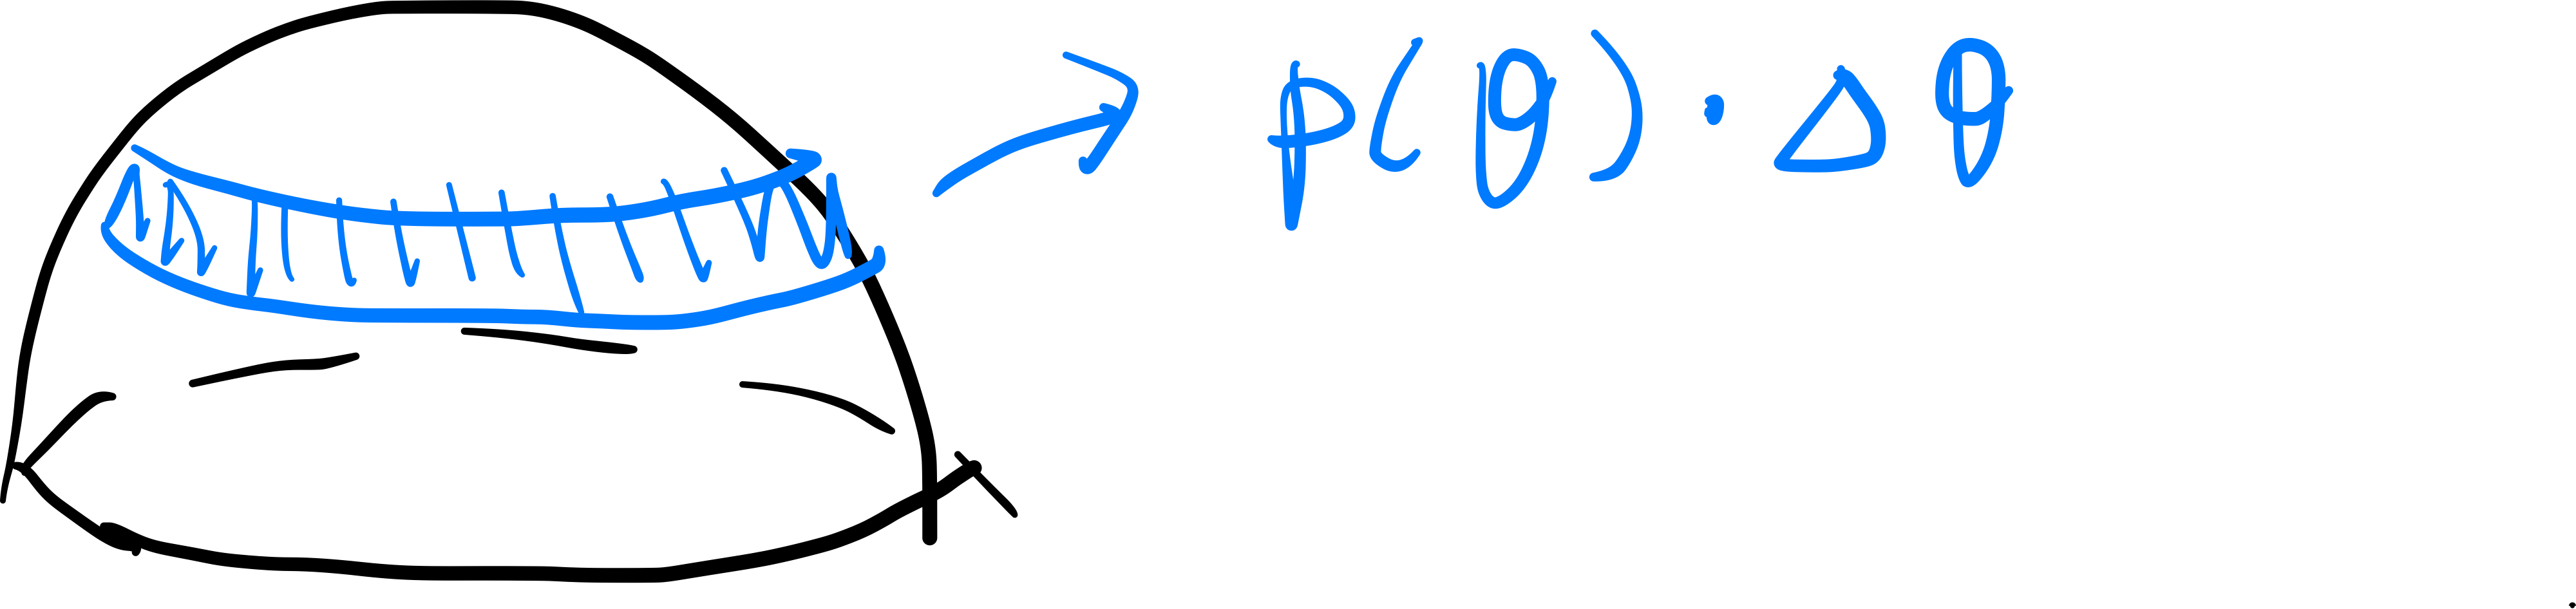 p(ϑ) · Δϑ